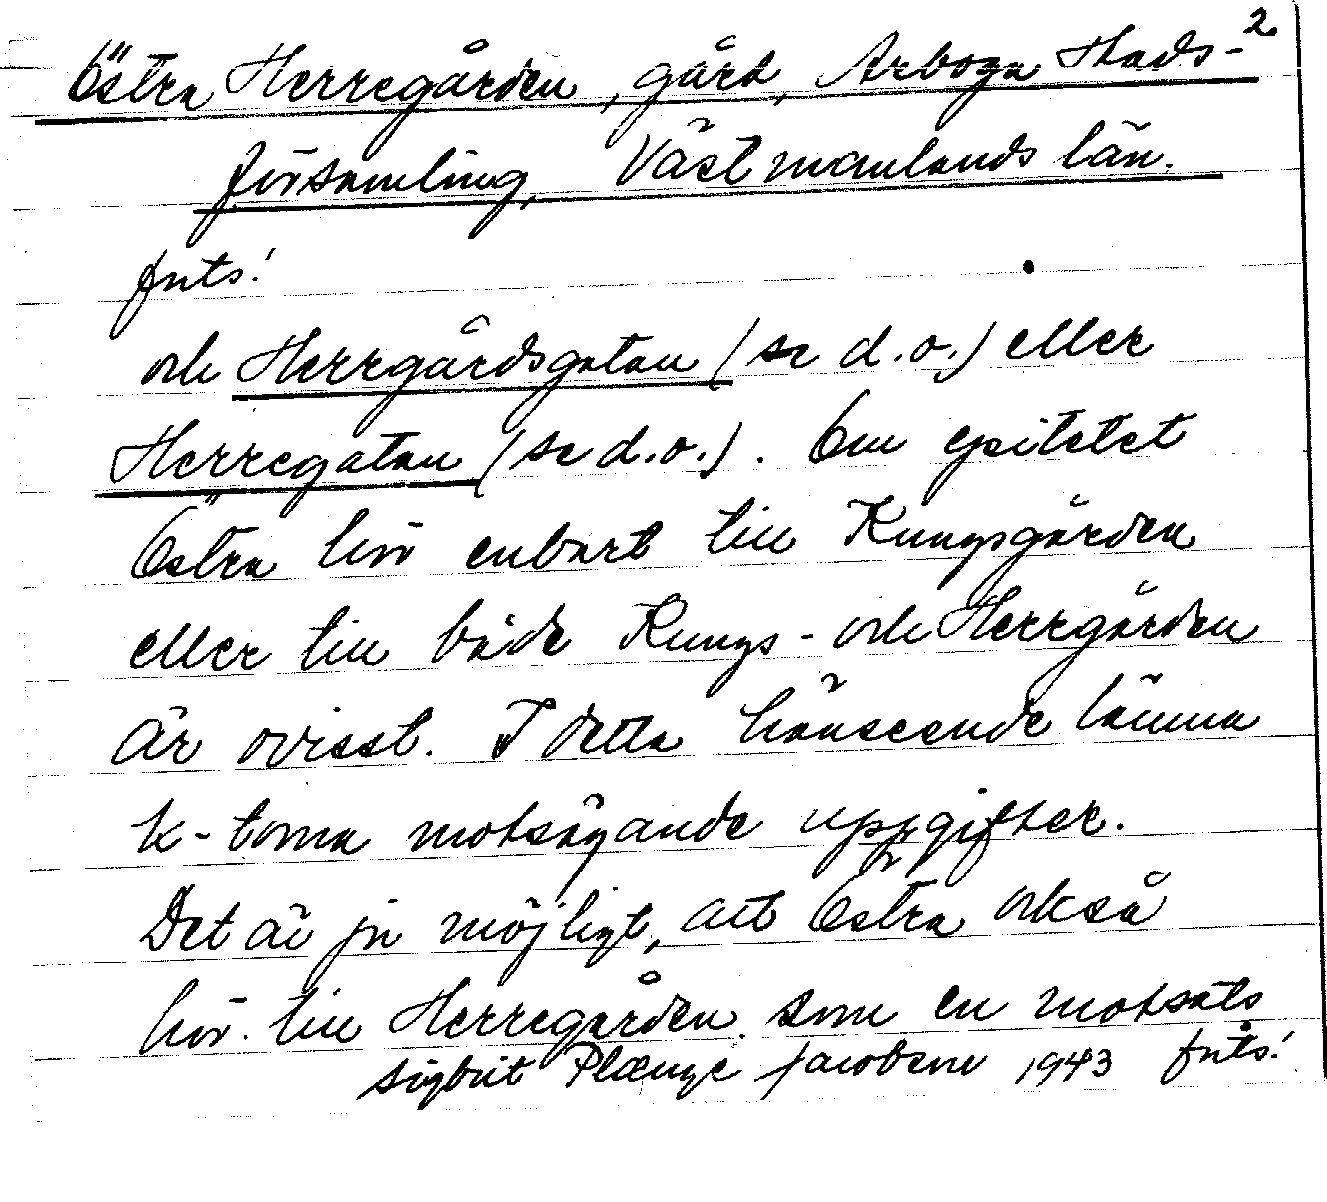 2.
Östra Herregården, gård, Arboga stads-
församling, Västmanlands län.
forts!
och Herrgårdsgatan (se d.o.) eller
Herregatan (se d.o.). Om epitetet
Östra hör enbart till Kungsgården
eller till både Kungs- och Herrgården
är ovisst. I detta hänseende lämna
k-torna motsägande uppgifter.
Det är ju möjligt, att Östra också
hör till Herregården som en motsats
Sigbrit Plænge Jacobson 1943 forts!